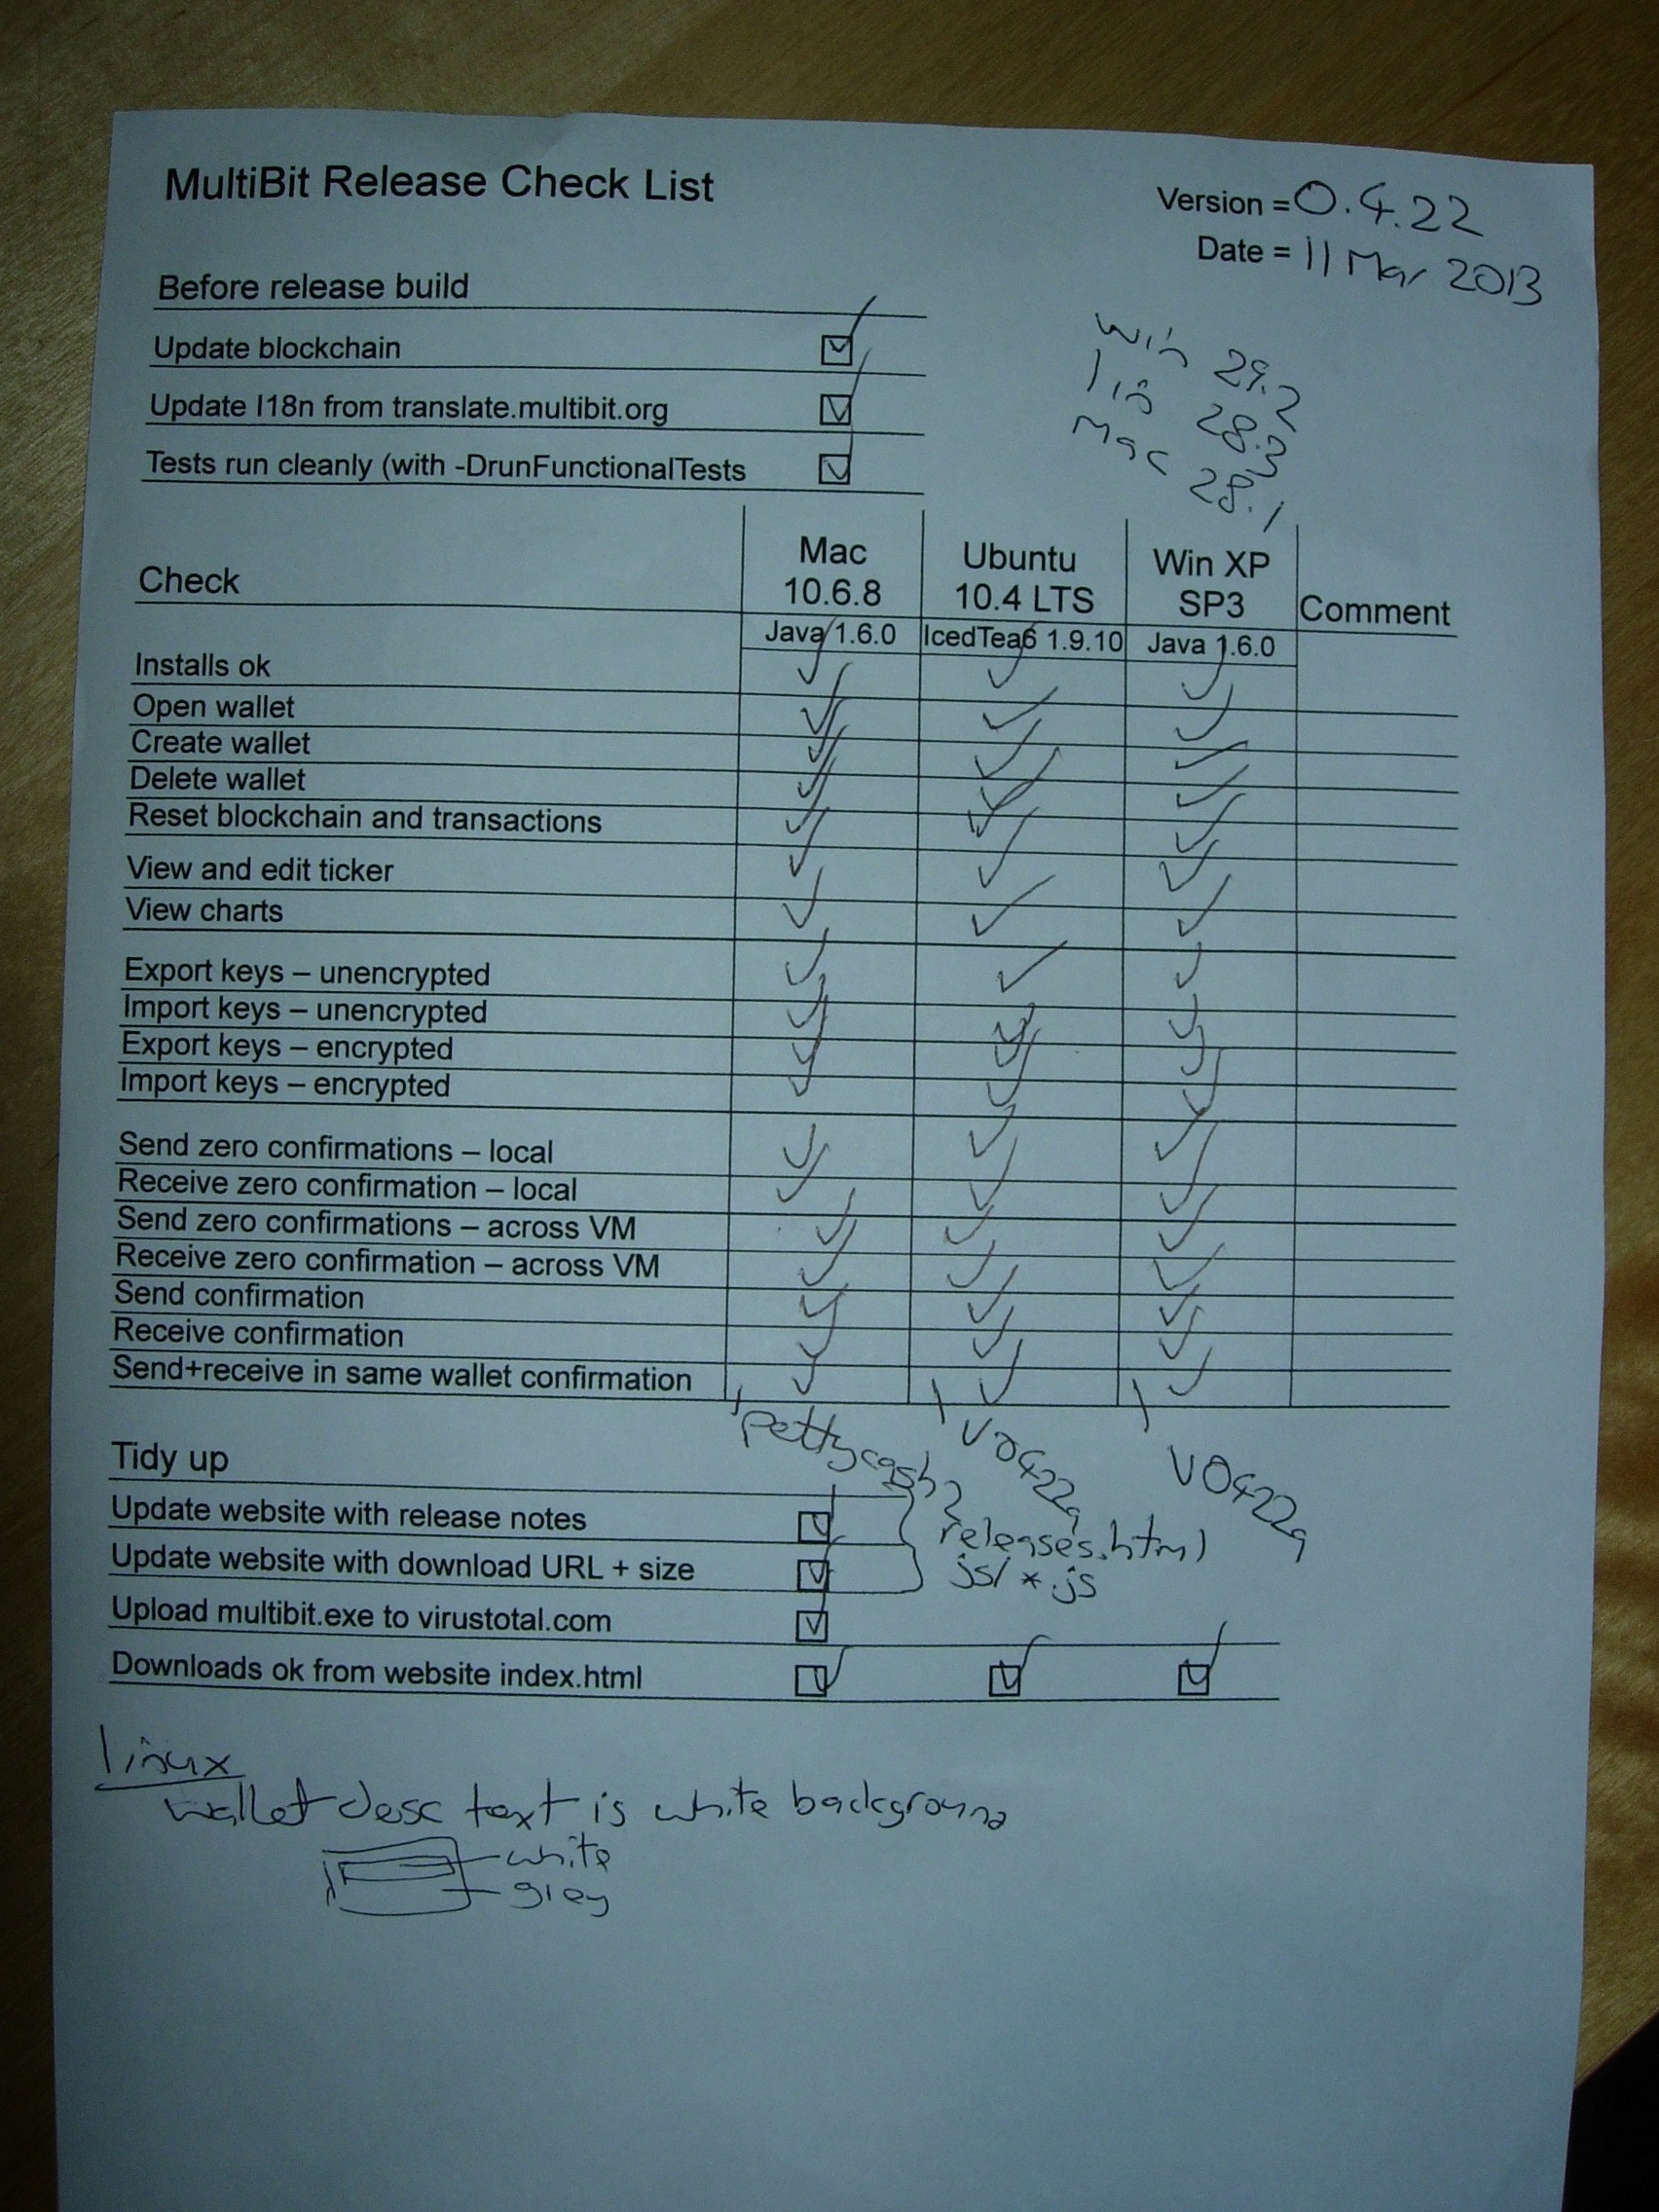 MultiBit Release Check List
Version = 0.4.22
Date = 11 Mar 2013
Before release build
Update blockchain
Update I18n from translate.multibit.org
Tests run cleanly (with -DrunFunctionalTests
Win 29.2
lin 28.3
Mac 28.1
Check
Mac 10.6.8
Ubuntu 10.4 LTS
Win XP SP3
Comment
Java 1.6.0
IcedTea6 1.9.10
Java 1.6.0
Installs ok
Open wallet
Create wallet
Delete wallet
Reset blockchain and transactions
View and edit ticker
View charts
Export keys – unencrypted
Import keys – unencrypted
Export keys – encrypted
Import keys – encrypted
Send zero confirmations – local
Receive zero confirmation – local
Send zero confirmations – across VM
Receive zero confirmation – across VM
Send confirmation
Receive confirmation
Send+receive in same wallet confirmation
pettycash2
V0422a
V0422a
Tidy up
Update website with release notes
Update website with download URL + size
releases.html
js/*.js
Upload multibit.exe to virustotal.com
Downloads ok from website index.html
linux
wallet desc text is white background
white
grey